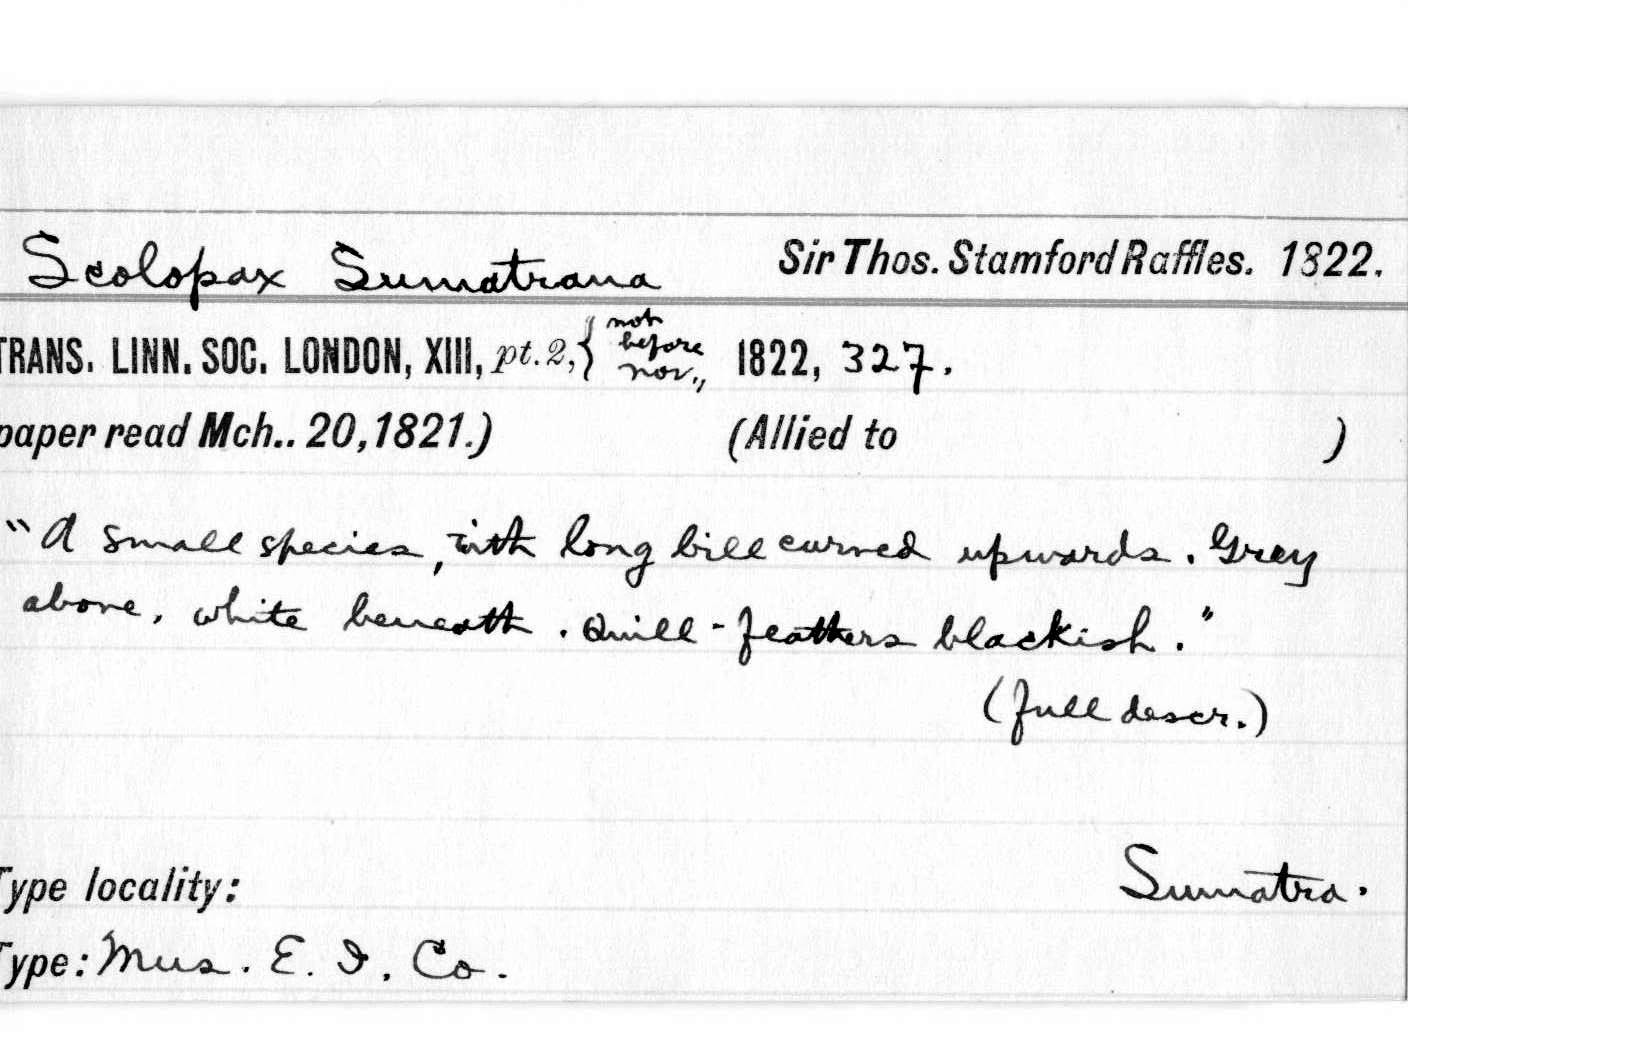 Scolopax Sumatrana Sir Thos. Stamford Raffles. 1822.
TRANS. LINN. SOC. LONDON, XIII, pt.2, { not before nov., 1822, 327.
paper read Mch.. 20, 1821.) (Allied to )
"A small species, with long bill curved upwards. Grey
above, white beneath. Quill-feathers blackish."
(full descr.)
Type locality: Sumatra.
Type: Mus. E. I. Co.